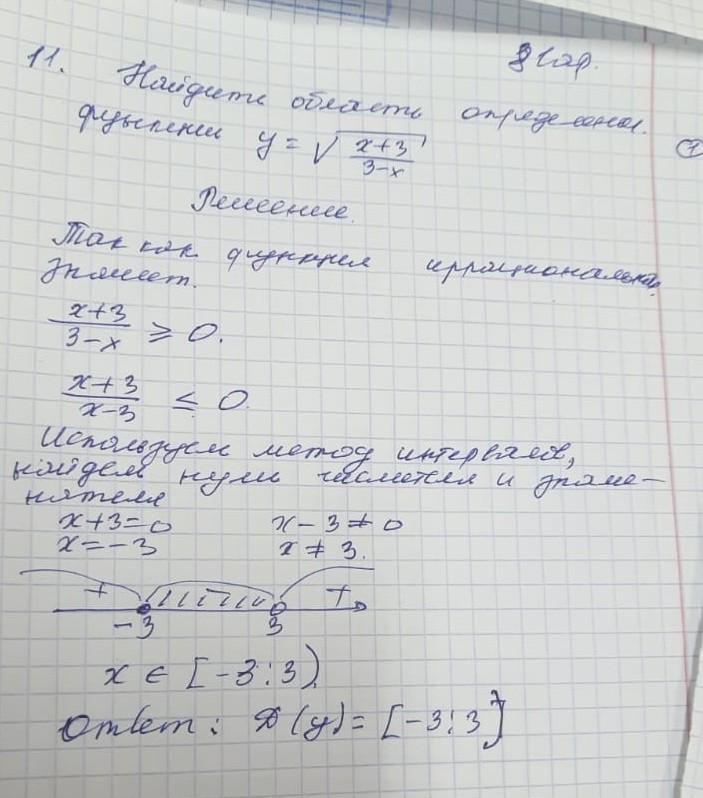 8 вар.
11. Найдите область определения
функции y = √(x+3)/(3-x)
①
Решение.
Так как функция иррациональная,
значит.
(x+3)/(3-x) ≥ 0.
(x+3)/(x-3) ≤ 0.
Используем метод интервалов,
найдем нули числителя и знаме-
нателя
x+3=0 x-3≠0
x=-3 x≠3.
+ - +
-3 3
x ∈ [-3;3)
Ответ: D(y) = [-3;3]